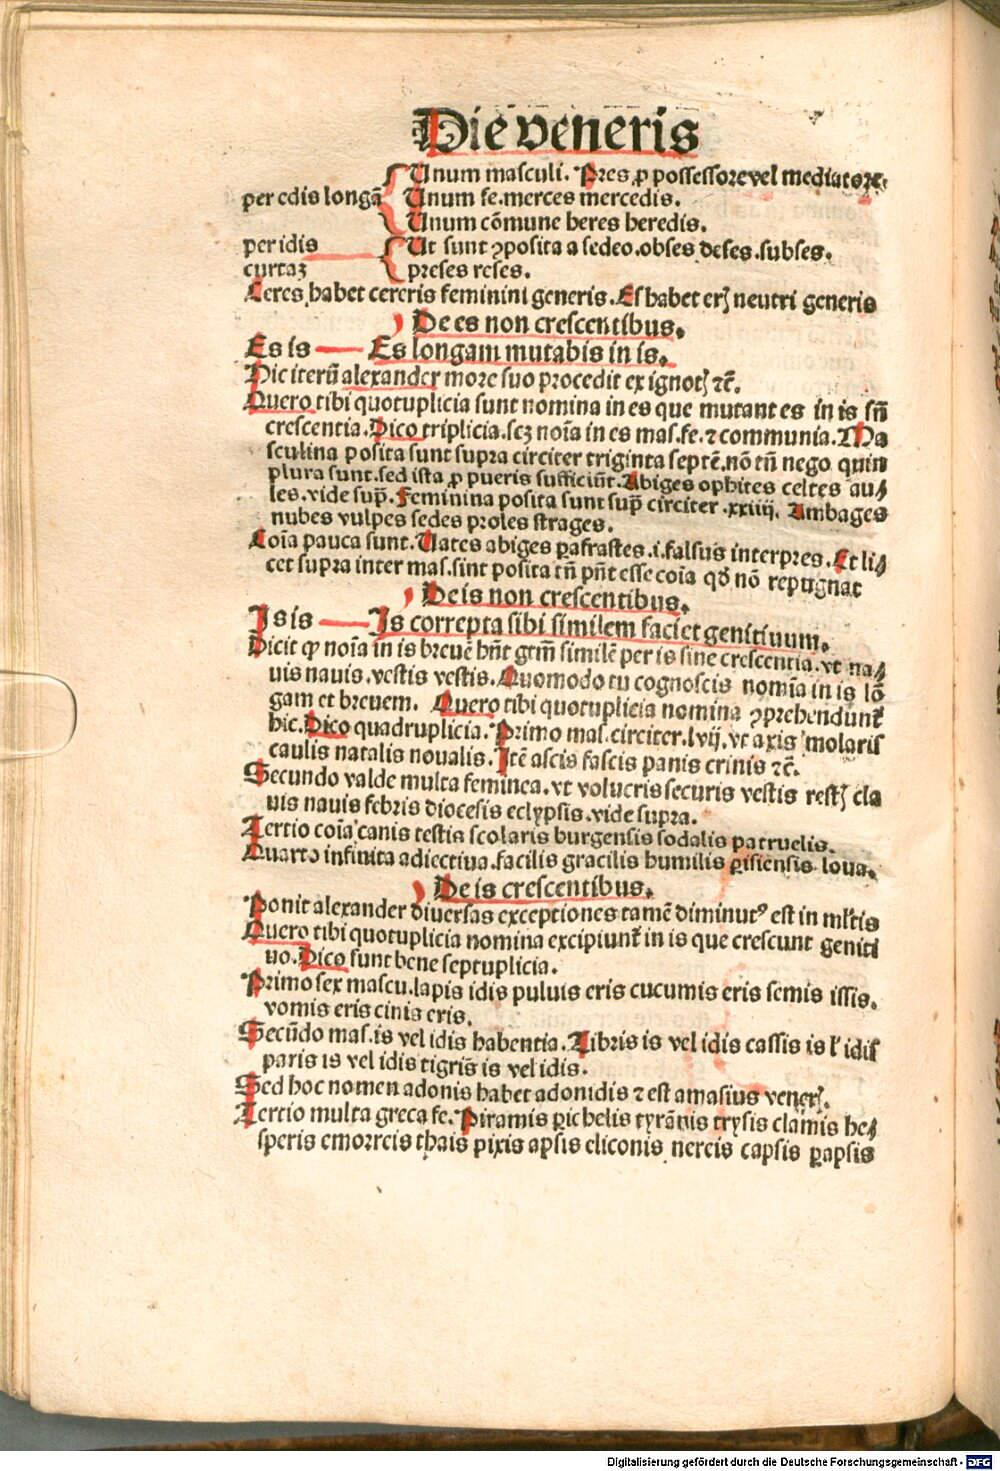 Die veneris
Unum masculi. Pres ꝓ possessore vel mediatore.
per edis longā Unum fe. merces mercedis.
Unum cōmune heres heredis.
per idis Ut sunt ꝯposita a sedeo. obses deses. subses.
curtaꝫ preses reses.
Ceres habet cereris feminini generis. Es habet erꝭ neutri generis
De es non crescentibus.
Es is Es longam mutabis in is.
Hic iterū alexander more suo procedit ex ignotꝭ ⁊c̄.
Quero tibi quotuplicia sunt nomina in es que mutant es in is sn̄
crescentia. Dico triplicia. scꝫ noīa in es mas. fe. ⁊ communia. Ma
sculina posita sunt supra circiter triginta septē. nō tn̄ nego quin
plura sunt. sed ista ꝓ pueris sufficiūt. Abiges ophites celtes au⸗
les. vide sup̄. Feminina posita sunt sup̄ circiter .xxiiij. Ambages
nubes vulpes sedes proles strages.
Coīa pauca sunt. Uates abiges ꝑafrastes .i. falsus interpres. Et li⸗
cet supra inter mas. sint posita tn̄ pn̄t esse coīa qđ nō repugnat
De is non crescentibus.
Is is Is correpta sibi similem faciet genitiuum.
Dicit ꝙ noīa in is breuē hn̄t gtm̄ similē per is sine crescentia. vt na⸗
uis nauis. vestis vestis. Quomodo tu cognoscis nomīa in is lō
gam et breuem. Quero tibi quotuplicia nomina ꝯprehendunt̄
hic. Dico quadruplicia. Primo mas. circiter. lvij. vt axis molaris
caulis natalis novalis. Itē ascis fascis panis crinis ⁊c̄.
Secundo valde multa feminea. vt volucris securis vestis restꝭ cla
uis nauis febris diocesis eclypsis. vide supra.
Tertio coīa canis testis scolaris burgensis sodalis patruelis.
Quarto infinita adiectiua. facilis gracilis humilis ꝑisiensis lova.
De is crescentibus.
Ponit alexander diversas exceptiones tamē diminutꝰ est in ml̄tis
Quero tibi quotuplicia nomina excipiunt̄ in is que crescunt geniti
uo. Dico sunt bene septuplicia.
Primo sex mascu. lapis idis puluis eris cucumis eris semis issis.
vomis eris cinis eris.
Secūdo mas. is vel idis habentia. Tibris is vel idis cassis is l' idis
paris is vel idis tigris is vel idis.
Sed hoc nomen adonis habet adonidis ⁊ est amasius venerꝭ.
Tertio multa greca fe. Piramis ꝑichelis tyrānis trysis clamis he⸗
speris emorreis thais pixis apsis eliconis nereis capsis ꝑapsis
Digitalisierung gefördert durch die Deutsche Forschungsgemeinschaft - DFG